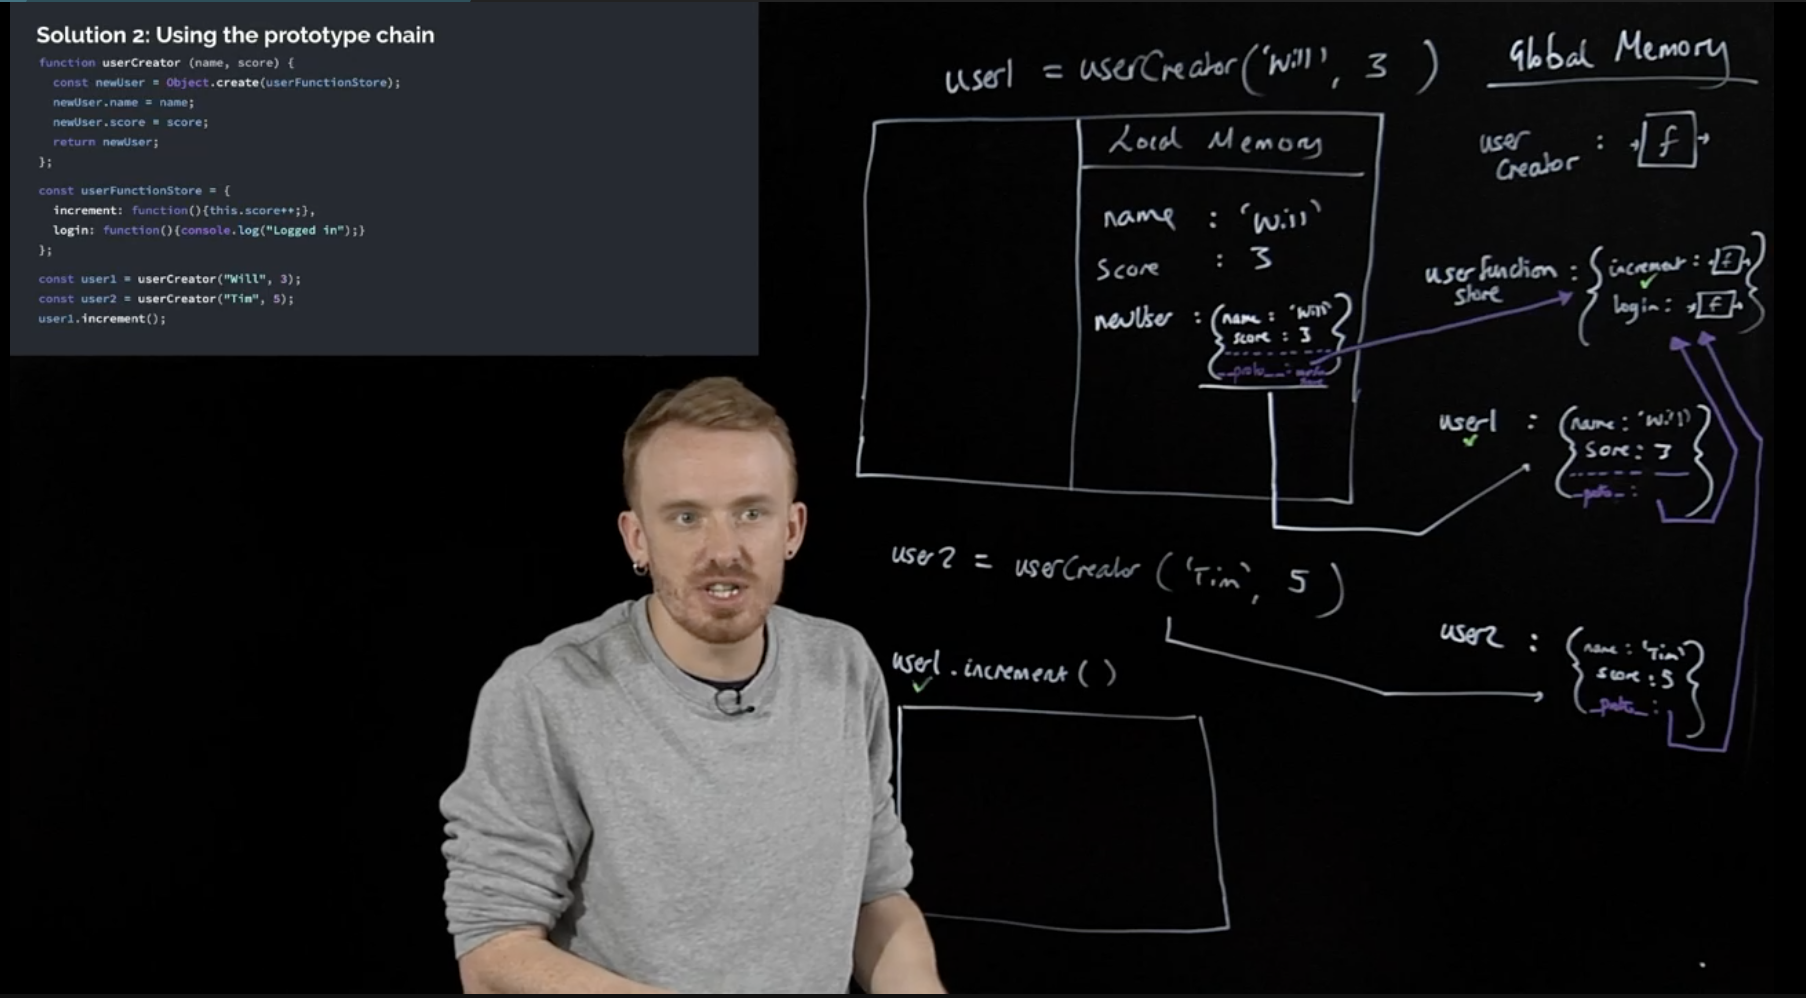 Solution 2: Using the prototype chain
function userCreator (name, score) {
const newUser = Object.create(userFunctionStore);
newUser.name = name;
newUser.score = score;
return newUser;
};
const userFunctionStore = {
increment: function(){this.score++;},
login: function(){console.log("Logged in");}
};
const user1 = userCreator("Will", 3);
const user2 = userCreator("Tim", 5);
user1.increment();
user1 = userCreator('Will', 3)
Local Memory
name : 'Will'
Score : 3
newUser : {name : 'Will'
score : 3
__proto__ :
user2 = userCreator ('Tim', 5)
user1.increment()
Global Memory
user
Creator : f
userFunction : {increment : f
store
login : f}
user1 : {name : 'Will'
Score : 3
__proto__ : }
user2 : {name : 'Tim'
score : 5
__proto__ : }